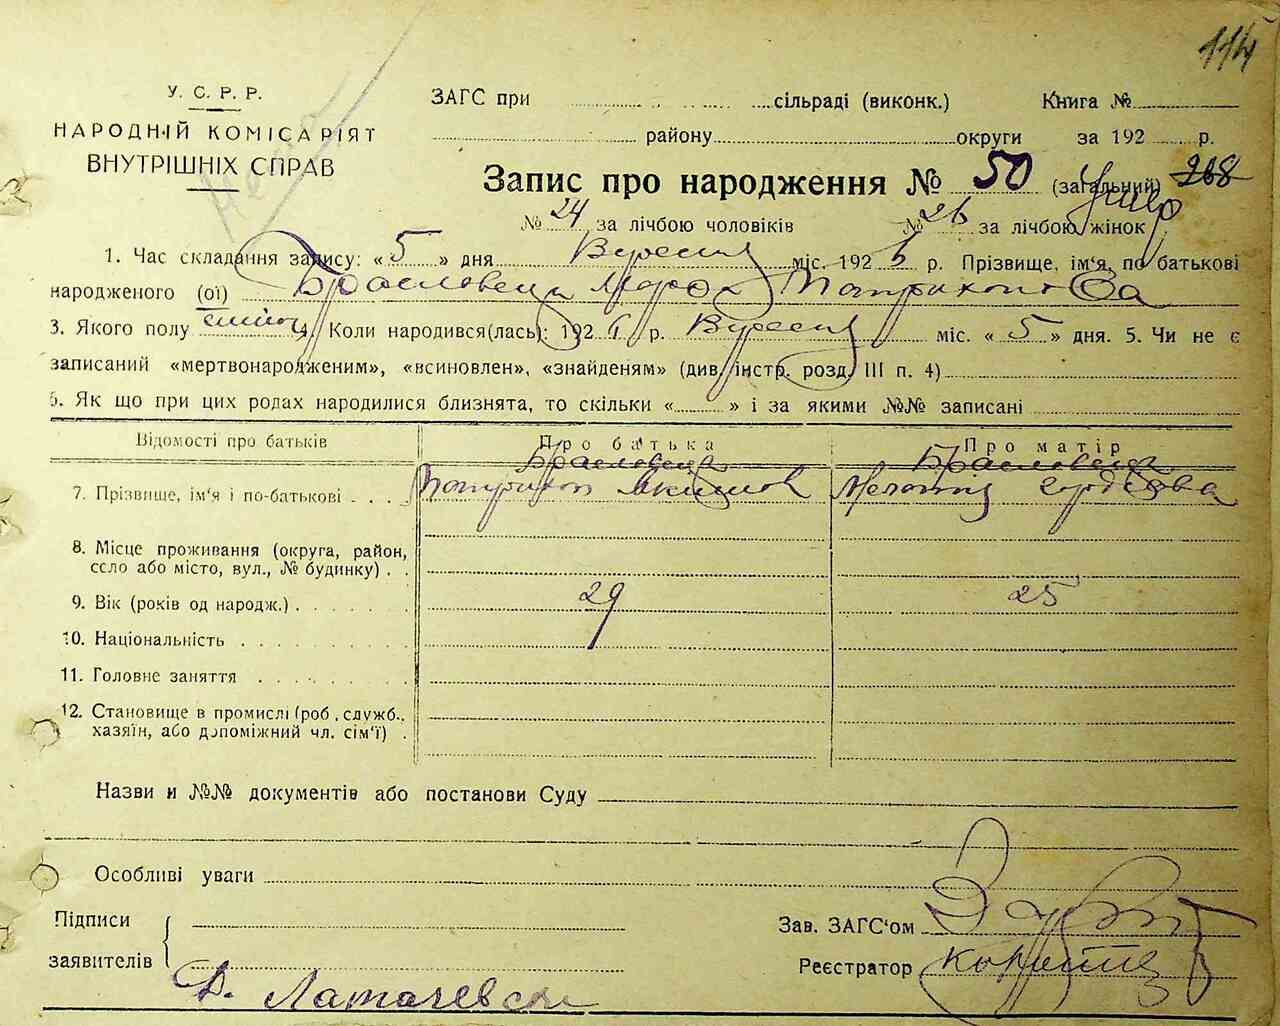 114
У. С. Р. Р.
НАРОДНІЙ КОМІСАРІЯТ
ВНУТРІШНІХ СПРАВ
ЗАГС при ... сільраді (виконк.) Книга №
району ... округи за 192 р.
Запис про народження № 50 (загальний) 268
Умер
№ 24 за лічбою чоловіків № 26 за лічбою жінок
1. Час складання запису: «5» дня Вересня міс. 192 6 р. Прізвище, ім'я, по батькові
народженого (ої)
3. Якого полу 4. Коли народився(лась): 192 6 р. Вересня міс. «5» дня. 5. Чи не є
записаний «мертвонародженим», «всиновлен», «знайденям» (див. інстр. розд. III п. 4)
6. Як що при цих родах народилися близнята, то скільки « » і за якими №№ записані
Відомості про батьків Про батька Про матір
7. Прізвище, ім'я і по-батькові
8. Місце проживання (округа, район,
село або місто, вул., № будинку)
9. Вік (років од народж.) 29 25
10. Національність
11. Головне заняття
12. Становище в промислі (роб., служб.,
хазяїн, або допоміжний чл. сім'ї)
Назви и №№ документів або постанови Суду
Особливі уваги
Підписи
заявителів
Зав. ЗАГС'ом
Реєстратор